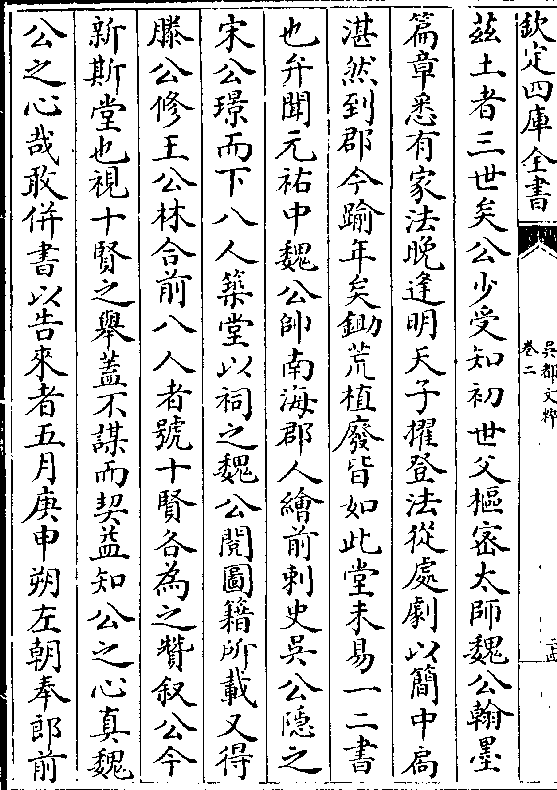 欽定四庫全書
吳都文粹
卷二
茲土者三世矣公少受知初世父樞密太師魏公翰墨
篇章悉有家法晚逢明天子擢登法從處劇以簡中扃
湛然到郡今踰年矣鋤荒植廢皆如此堂未易一二書
也弁聞元祐中魏公帥南海郡人繪前刺史吳公隱之
宋公璟而下八人築堂以祠之魏公閱圖籍所載又得
滕公修王公林合前八人者號十賢各為之贊叙公今
新斯堂也視十賢之舉蓋不謀而契益知公之心真魏
公之心哉敢併書以告來者五月庚申朔左朝奉郎前